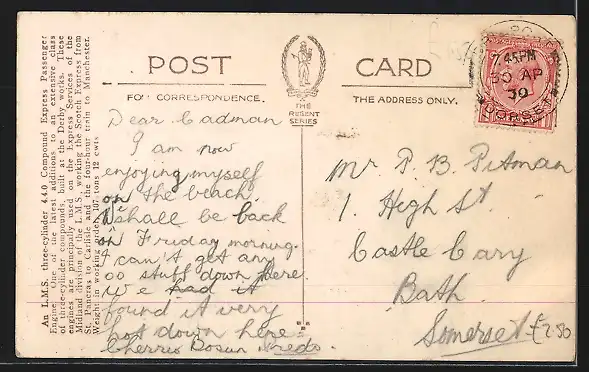 An L.M.S. three-cylinder 4.4.0 Compound Express Passenger
Engine. One of the latest additions to an extensive class
of three-cylinder compounds, built at the Derby works. These
engines are principally used on the Express Services of the
Midland division of the L.M.S. working the Scotch Express from
St. Pancras to Carlisle and the four-hour train to Manchester.
Weight in working order, 107 tons 12 cwts
POST CARD
FOR CORRESPONDENCE.
THE
REGENT
SERIES
THE ADDRESS ONLY.
Dear Cadman
I am now
enjoying myself
on the beach.
I shall be back
on Friday morning.
I can't get any
oo stuff down here.
We had it
found it very
hot down here
Cherrio Bosun
Mr P. B. Pitman
1. High St.
Castle Cary
Bath
Somerset
£2.80
7.45PM
30 AP
DORSET